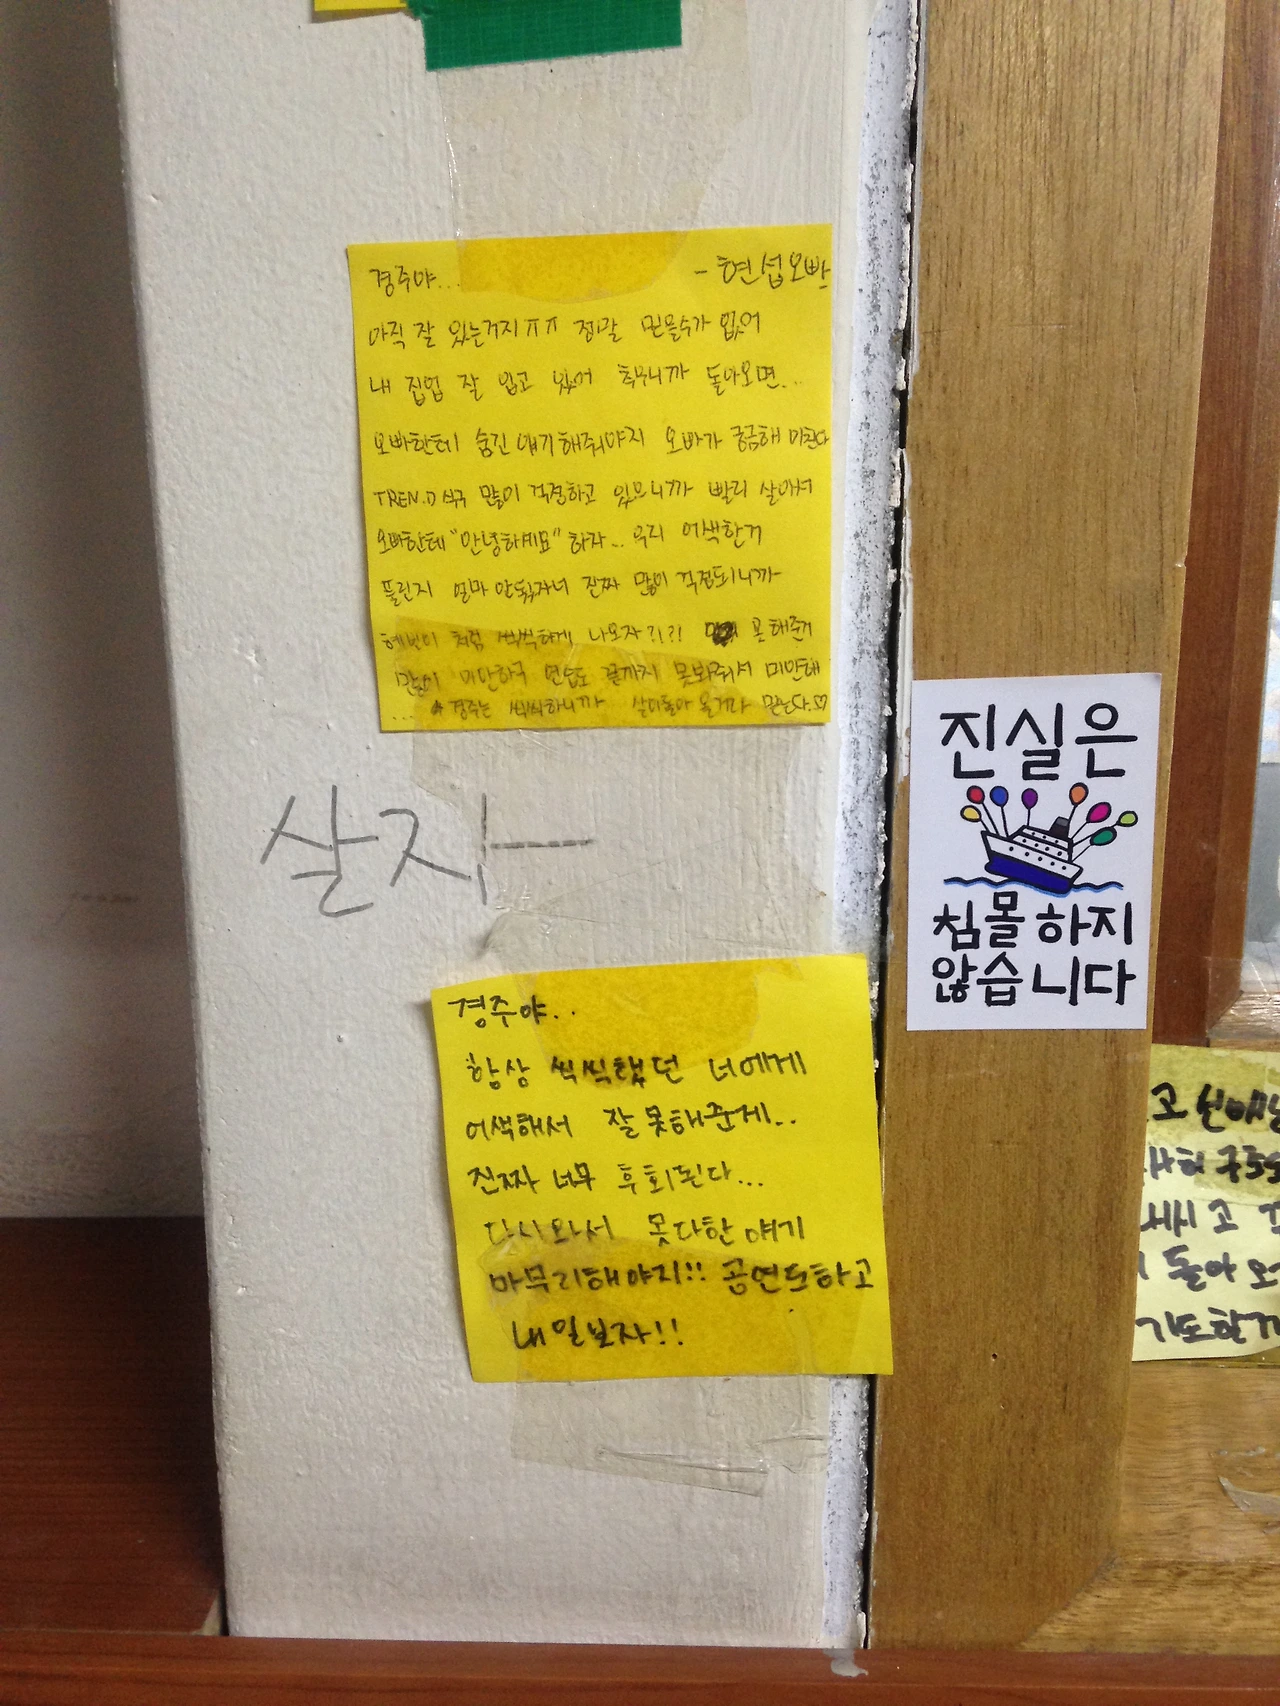 경주야... - 현섭오빠
아직 잘 있는거지ㅠㅠ 정말 믿을수가 없어
내 집업 잘 입고 있어 추우니까 돌아오면...
오빠한테 숨긴 얘기해줘야지 오빠가 궁금해 미친다
TREN.D 식구 많이 걱정하고 있으니까 빨리 살아서
오빠한테 "안녕하세요" 하자... 우리 어색한거
풀린지 얼마 안됐자너 진짜 많이 걱정되니까
혜빈이 처럼 씩씩하게 나오자?!?! 못해준거
많이 미안하구 연습도 끝까지 못봐줘서 미안해
... 경주는 씩씩하니까 살아돌아올거라 믿는다.♡
살자ㅡ
경주야..
항상 씩씩했던 너에게
어색해서 잘 못해준게..
진짜 너무 후회된다...
다시와서 못다한 얘기
마무리해야지!! 공연도하고
내일보자!!
진실은
침몰하지
않습니다
돌아
기도할게